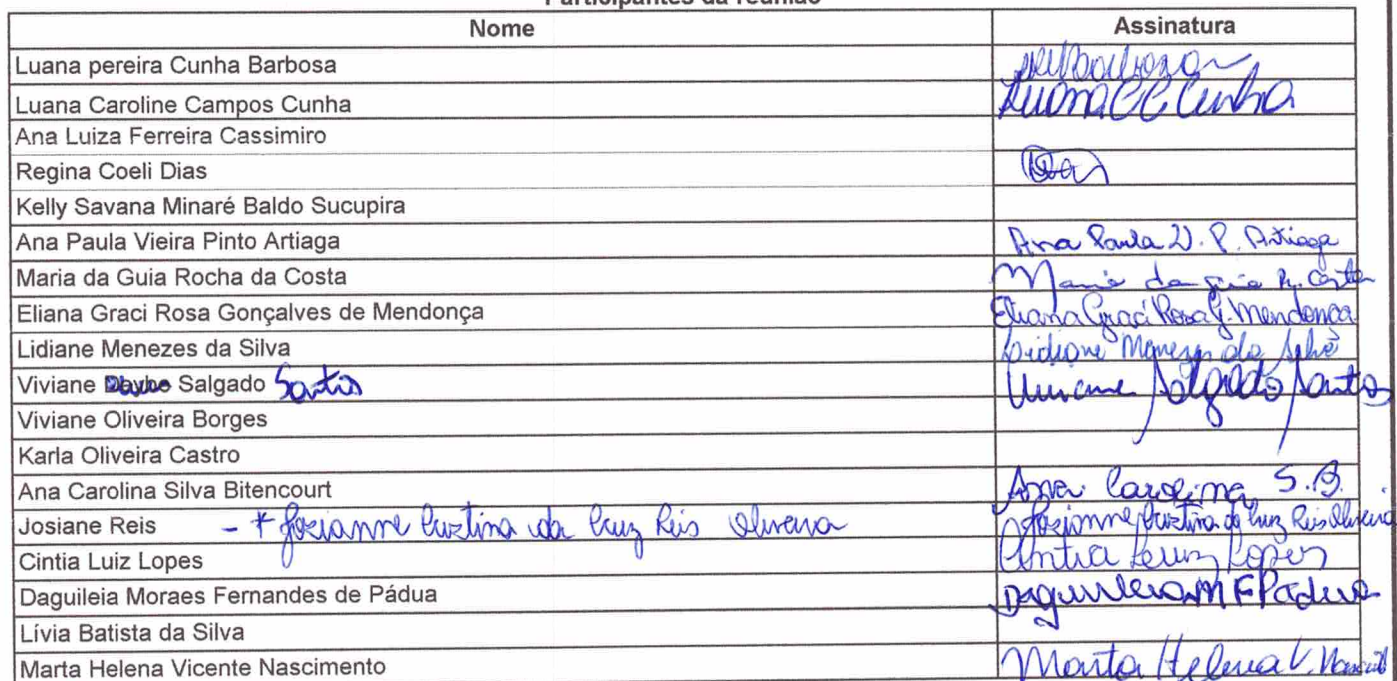 Participantes da reunião
Nome Assinatura
Luana pereira Cunha Barbosa
Luana Caroline Campos Cunha Luana CC Cunha
Ana Luiza Ferreira Cassimiro
Regina Coeli Dias
Kelly Savana Minaré Baldo Sucupira
Ana Paula Vieira Pinto Artiaga Ana Paula V. P. Artiaga
Maria da Guia Rocha da Costa Maria da Guia R. Costa
Eliana Graci Rosa Gonçalves de Mendonça Eliana Graci Rosa G. Mendonça
Lidiane Menezes da Silva Lidiane Menezes da Silva
Viviane Salgado Santos Viviane Salgado Santos
Viviane Oliveira Borges
Karla Oliveira Castro
Ana Carolina Silva Bitencourt Ana Carolina S.B.
Josiane Reis - * Josianne Cristina da Cruz Reis Oliveira Josianne Cristina da Cruz Reis Oliveira
Cintia Luiz Lopes Cintia Luiz Lopes
Daguileia Moraes Fernandes de Pádua Daguileia M F Pádua
Lívia Batista da Silva
Marta Helena Vicente Nascimento Marta Helena V. Nascimt